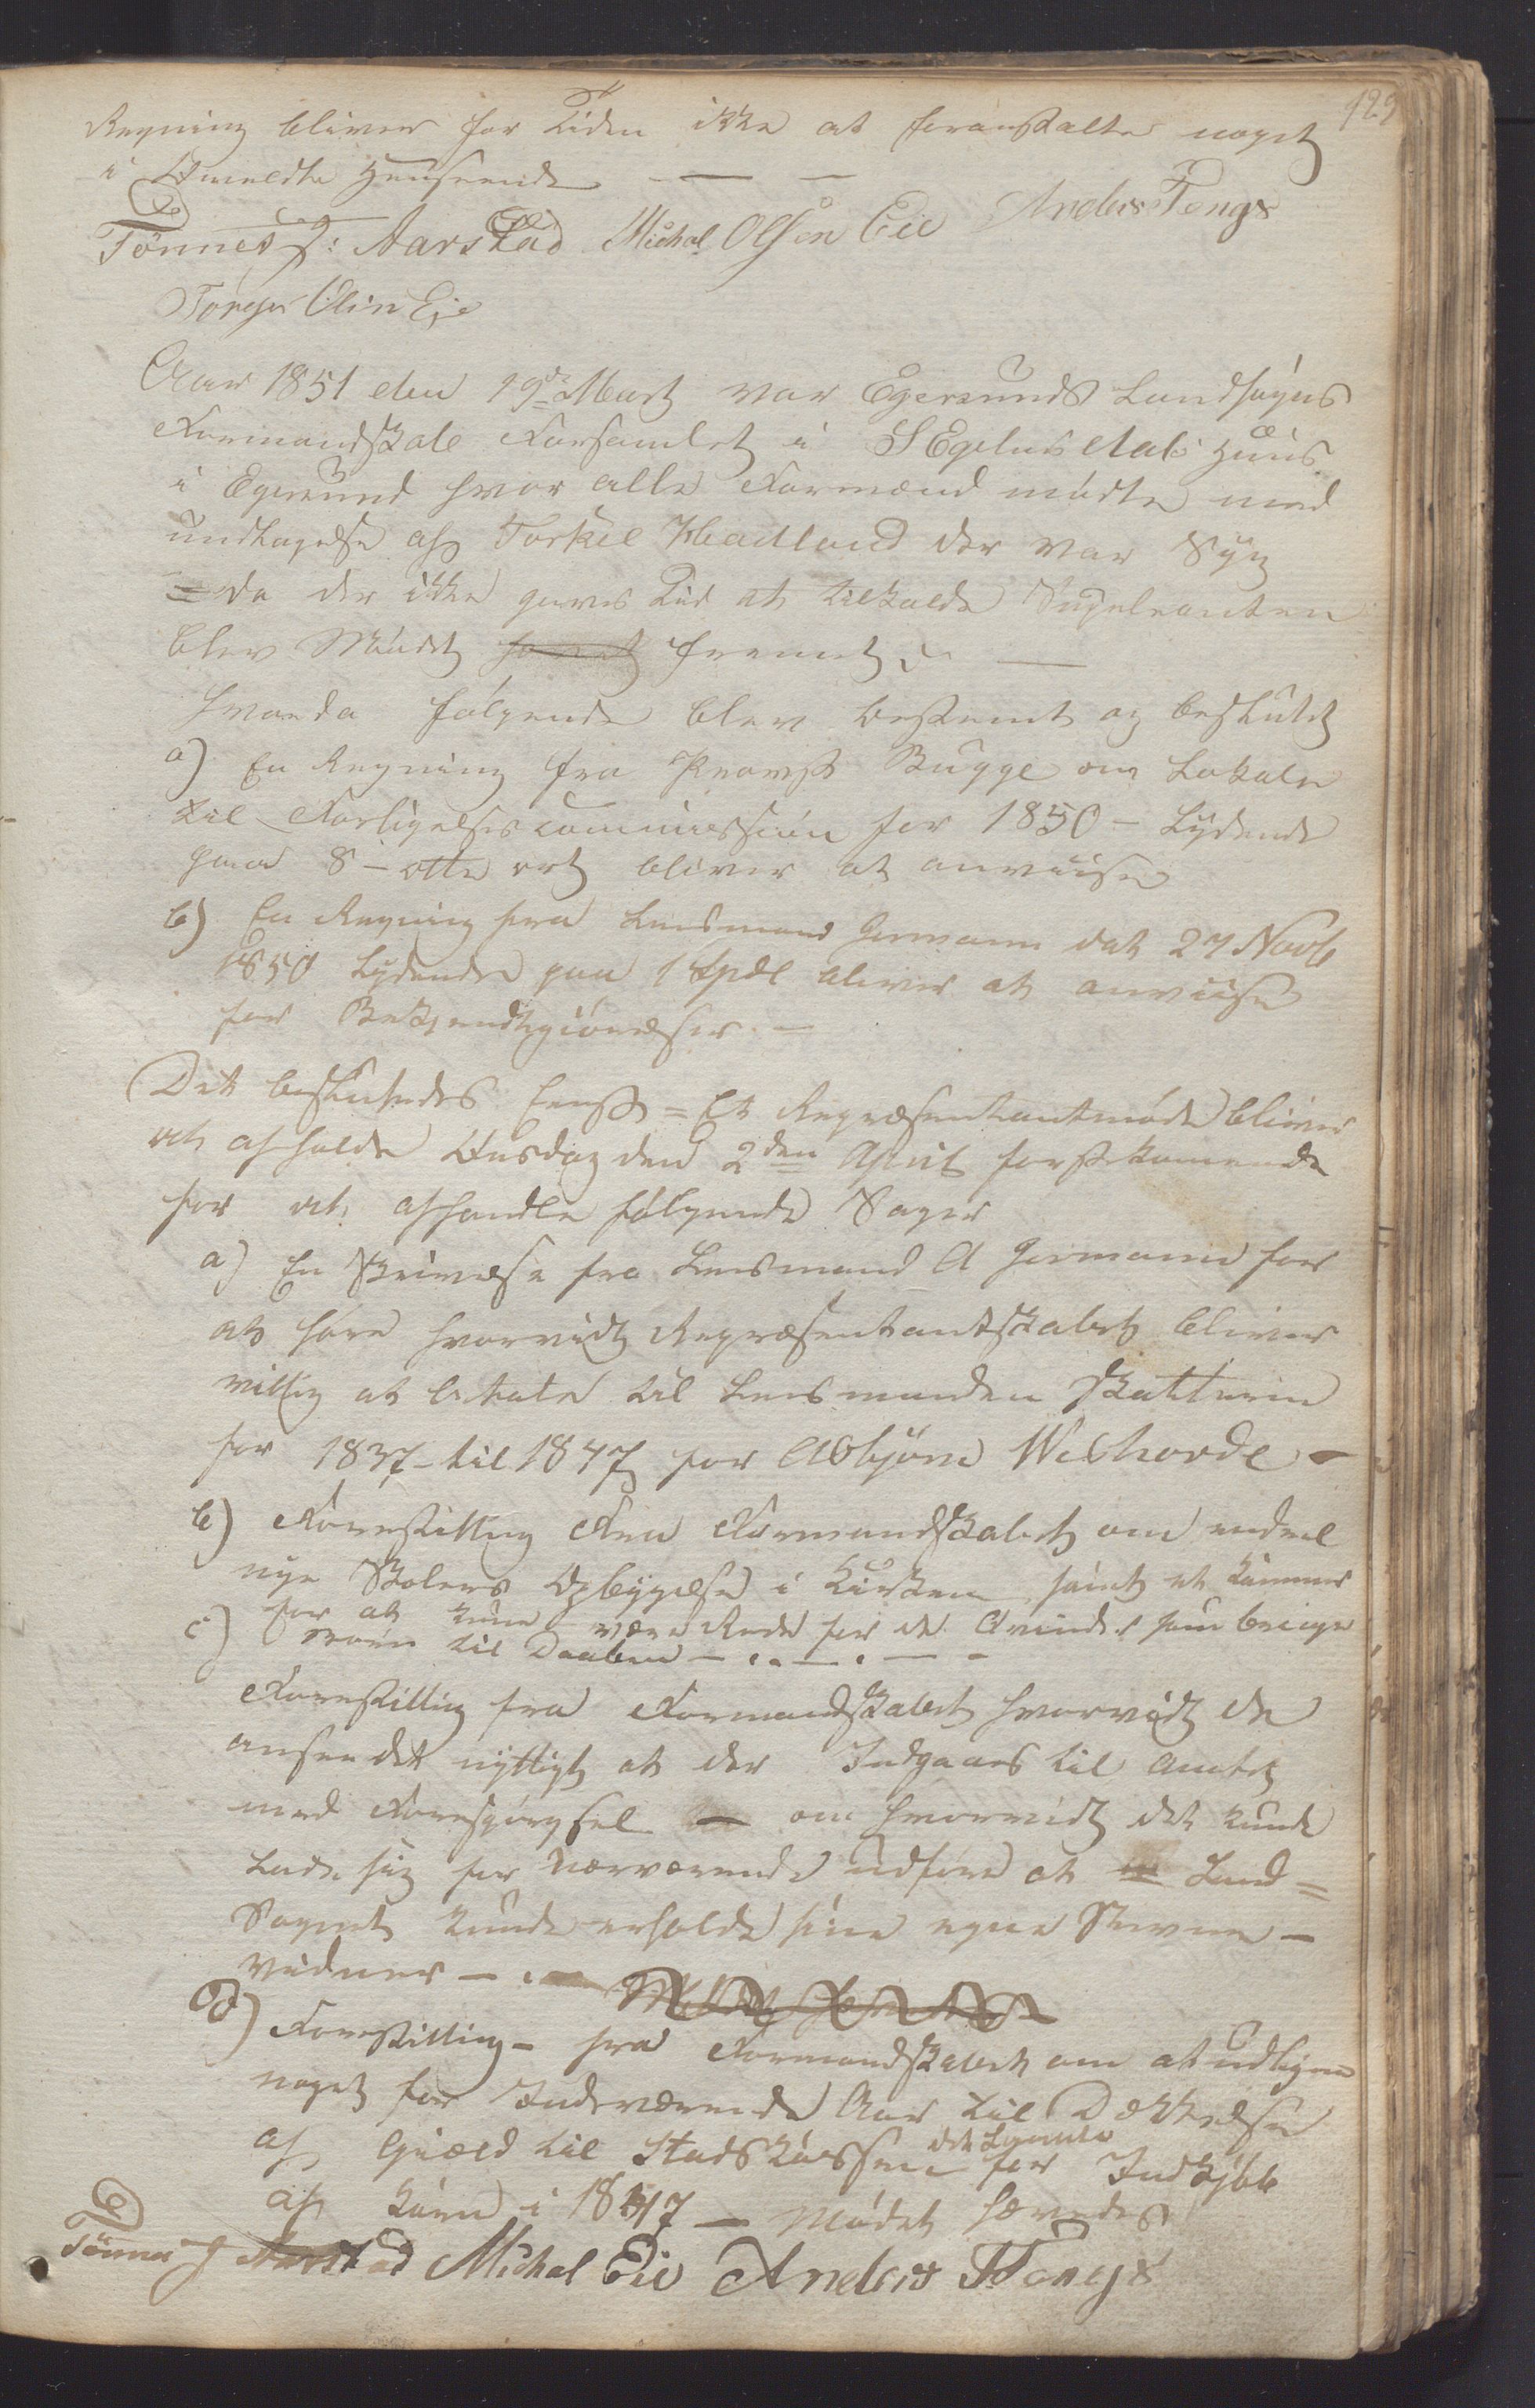 129
Regning bliver for Tiden ikke at foranstalte noget
i Anmeldte Henseende — —
Tønnes J: Aarstad Michal Olsen Eie Anders Tengs
Torger Olsen Eie
Aar 1851 den 19de Marts var Egersunds Landsogns
Formandskab Forsamlet i S Egelands Huus
i Egersund hvor alle Formænd mødte med
undtagelse af Torkel Hadland der var Syg
= da der ikke gaves Tid at tilkalde Supleanten
blev Mødet fremet —
hvorda følgende blev bestemt og besluttet
a) En Regning fra Provst Bugge om Lokale
til Forligelsescommission for 1850 – Lydende
paa 8 – otte ort bliver at anviise
b) En Regning fra Lensmand Germann dat 27 Novb
1850 Lydende paa 1 Spdl bliver at anviise
for Bekjendtgiørelser. —
Det besluttedes Eenst = Et Repræsentantmøde bliver
at afholde Onsdag den 2den April førstkomende
for at afhandle følgende Sager
a) En Skrivelse fra Lensmand A Germann for
at høre hvorvidt Repræsentantskabet bliver
villig at betale til Lensmanden Skatterne
for 1837 – til 1847 for Asbjørn —
b) Forestilling Fra Formandskabet om endeel
nye Stolers Opbyggelse i Kirken samt et Kammer
c) for at kune være Rede for de Qvinder som bringe
Børn til Daaben — . . — . — -
Forestilling fra Formandskabet hvorvidt de
ansee det nyttigt at der Indgaaes til Amtet
med Forespørgsel om hvorvidt det kunde
Lade sig for nærværende udføre at Land=
Sognet kunde erholde sine egne Stevne–
vidner — .
d) Forestilling – fra Formandskabet om at udligne
noget for Indeværende Aar til Dækkelse
af Giæld til Stadskassen for Indkjøb
af Korn i 1847 — Mødet hævedes
Tønnes J Aarstad Michal Eie Anders Tengs